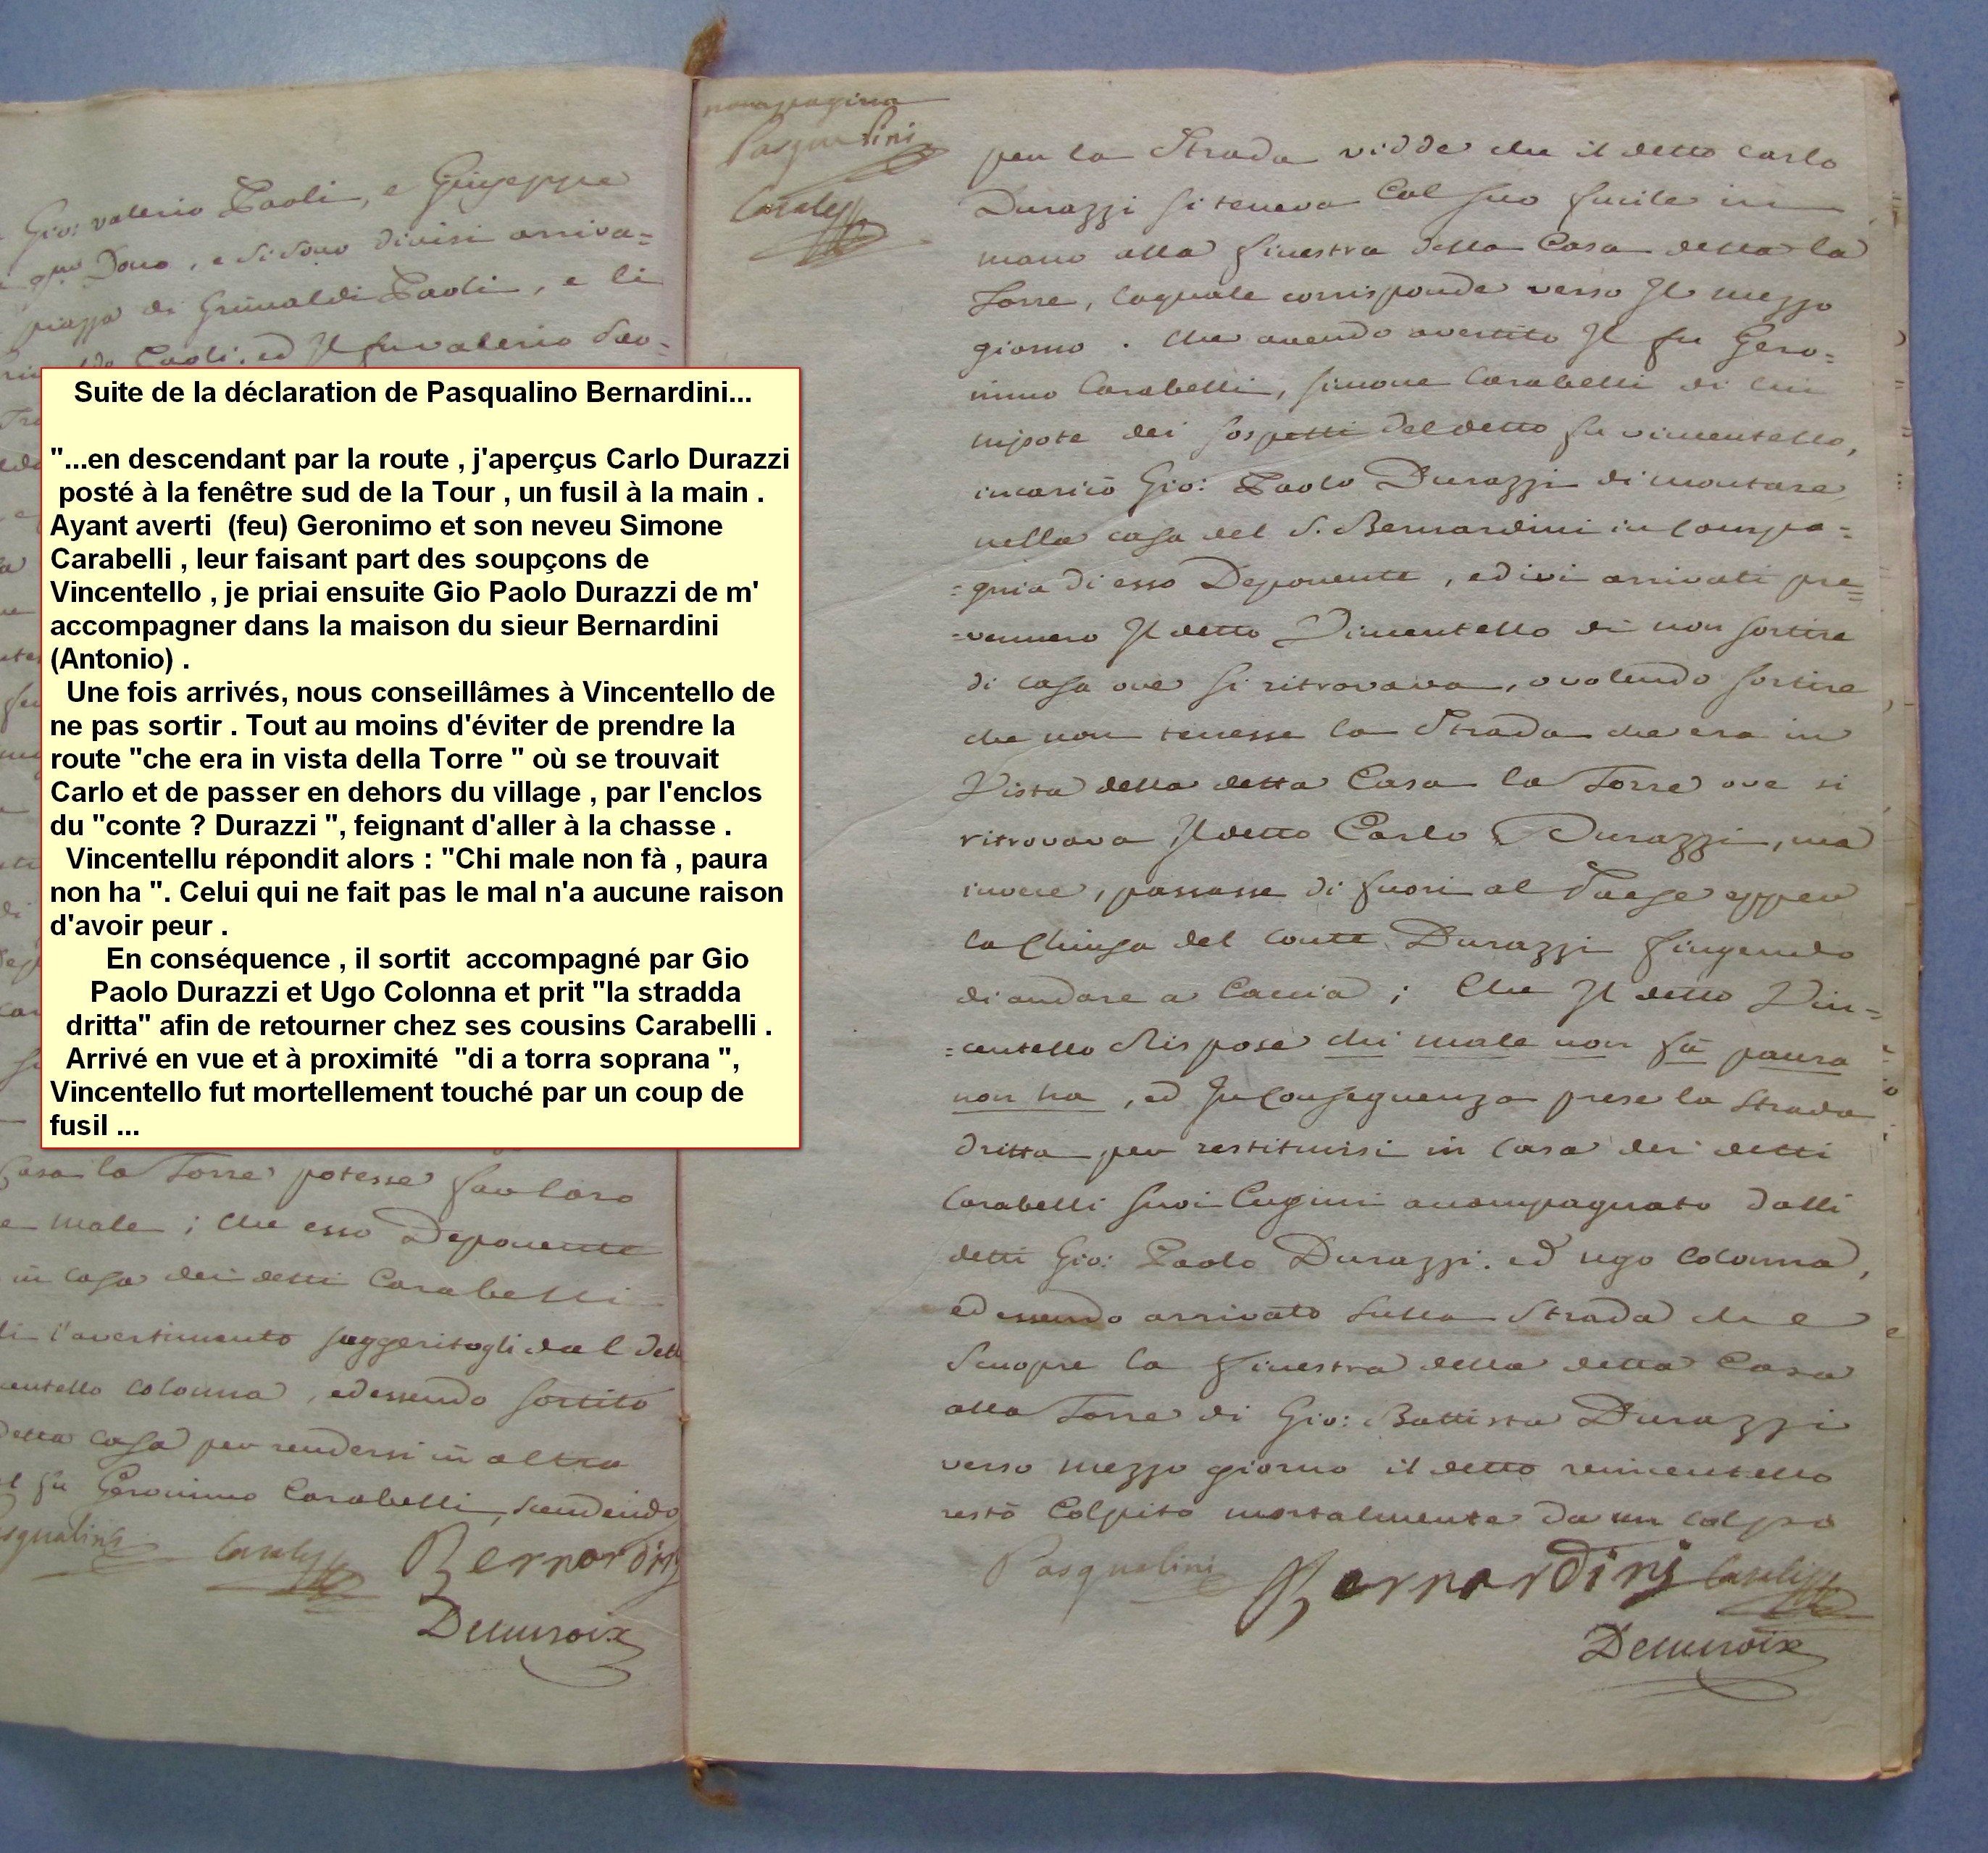 Gio: valerio Paoli, e Giuseppe
qm Dono, e si sono divisi arriva=
piazza di Grimaldi Paoli, e li
Paoli. ed Il fu valerio Pao=
Suite de la déclaration de Pasqualino Bernardini...
"...en descendant par la route , j'aperçus Carlo Durazzi
posté à la fenêtre sud de la Tour , un fusil à la main .
Ayant averti (feu) Geronimo et son neveu Simone
Carabelli , leur faisant part des soupçons de
Vincentello , je priai ensuite Gio Paolo Durazzi de m'
accompagner dans la maison du sieur Bernardini
(Antonio) .
Une fois arrivés, nous conseillâmes à Vincentello de
ne pas sortir . Tout au moins d'éviter de prendre la
route "che era in vista della Torre " où se trouvait
Carlo et de passer en dehors du village , par l'enclos
du "conte ? Durazzi ", feignant d'aller à la chasse .
Vincentellu répondit alors : "Chi male non fà , paura
non ha ". Celui qui ne fait pas le mal n'a aucune raison
d'avoir peur .
En conséquence , il sortit accompagné par Gio
Paolo Durazzi et Ugo Colonna et prit "la stradda
dritta" afin de retourner chez ses cousins Carabelli .
Arrivé en vue et à proximité "di a torra soprana ",
Vincentello fut mortellement touché par un coup de
fusil ...
Casa la Torre potesse far loro
male ; che esso Deponente
in casa dei detti Carabelli
l'avertimento suggeritogli dal dett
colonna, ed essendo sortito
detta casa per rendersi in altra
fu Geronimo Carabelli, scendendo
Bernardini
Delacroix
nona pagina
Pasqualini
per la Strada vidde che il detto Carlo
Durazzi si teneva Col suo fucile in
mano alla finestra della Casa detta la
Torre, laquale corrisponde verso Il mezzo
giorno. Che avendo avertito Il fu Gero=
nimo Carabelli, simone Carabelli di lui
nipote dei sospetti del detto fu vincentello,
incaricò Gio: Paolo Durazzi di montare
nella casa del S. Bernardini in compa=
=gnia di esso Deponente, ed ivi arrivati pre=
=vennero Il detto Vincentello di non sortire
di casa ove si ritrovava, o volendo sortire
che non tenesse la Strada che era in
Vista della detta Casa la Torre ove si
ritrovava Il detto Carlo Durazzi, ma
invece, passasse di fuori al Paese e per
la Chiusa del conte Durazzi fingendo
di andare a Caccia ; Che Il detto Vin=
=centello Rispose chi male non fà paura
non ha, ed In Conseguenza prese la strada
dritta per restituirsi in Casa dei detti
Carabelli suoi Cugini accompagnato dalli
detti Gio: Paolo Durazzi. ed ugo Colonna,
ed essendo arrivato sulla Strada che
Scuopre la finestra della detta Casa
alla Torre di Gio: Battista Durazzi
verso mezzo giorno il detto vincentello
restò Colpito mortalmente da un colpo
Pasqualini Bernardini
Delacroix